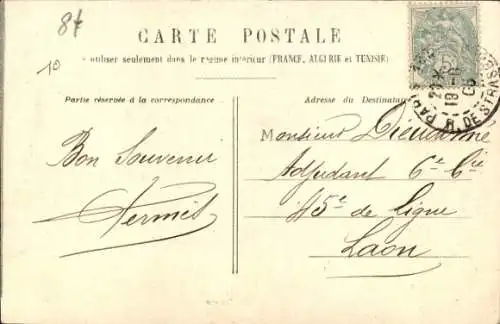 8t
10
CARTE POSTALE
à utiliser seulement dans le régime intérieur (FRANCE, ALGERIE et TUNISIE)
Partie réservée à la correspondance
Adresse du Destinataire
Bon Souvenir
Monsieur Dieudonné
Adjudant 6e Cie
45e de ligne
Laon
PARIS
R. DE STRASB